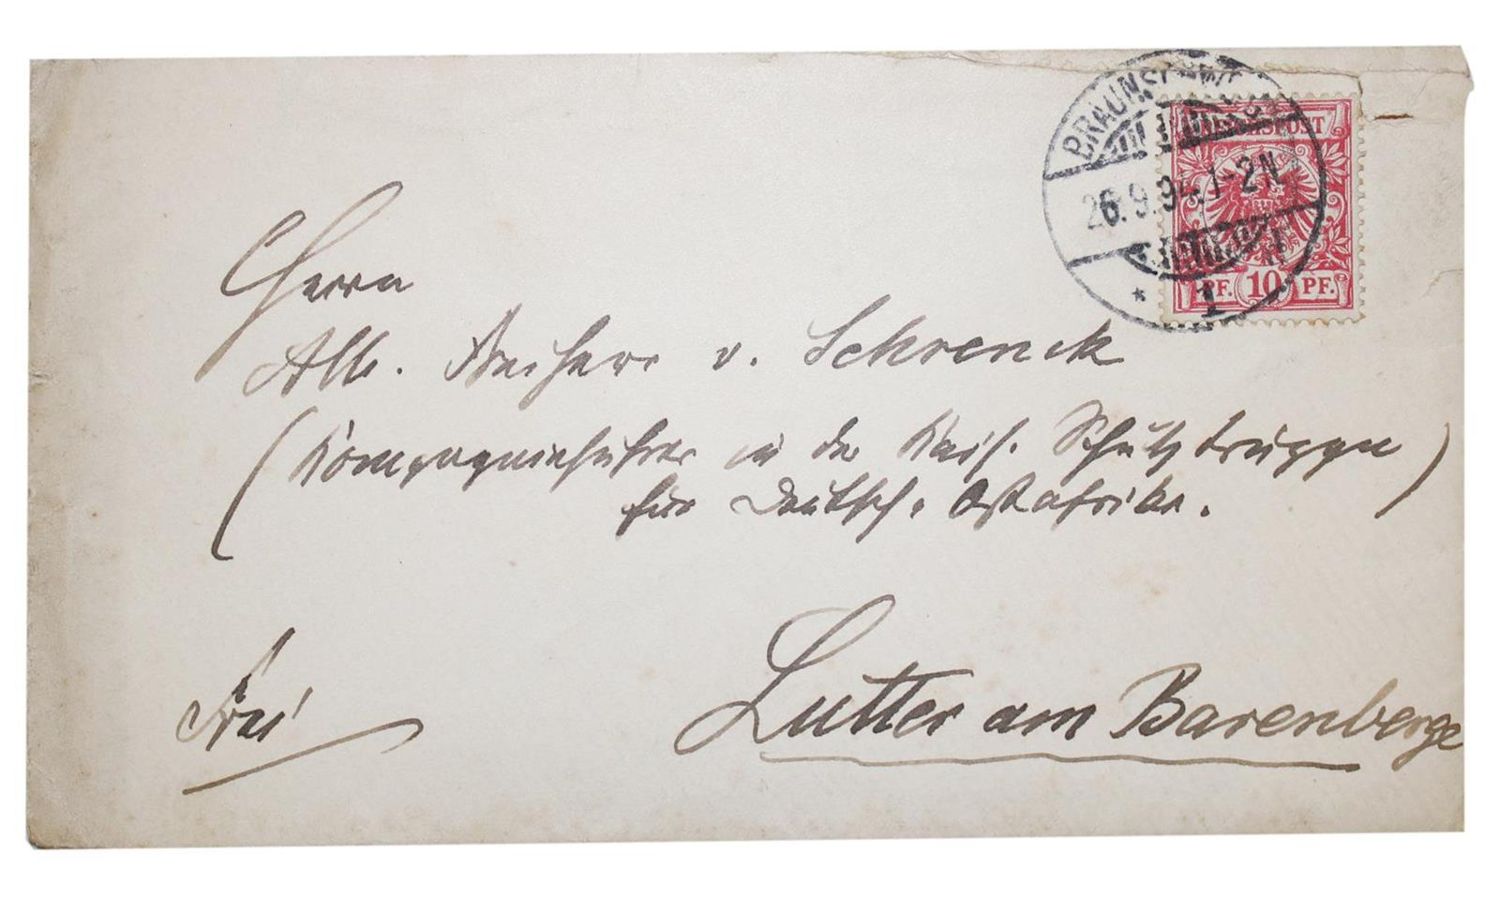 BRAUNSCHWEIG
26.9.94.1-2N.
* 1
REICHSPOST
PF. 10 PF.
Herrn
Alb. Freiherr v. Schrenck
(Kompagnieführer in der Kais. Schutztruppe)
für Deutsch-Ostafrika.
Frei
Lutter am Barenberge